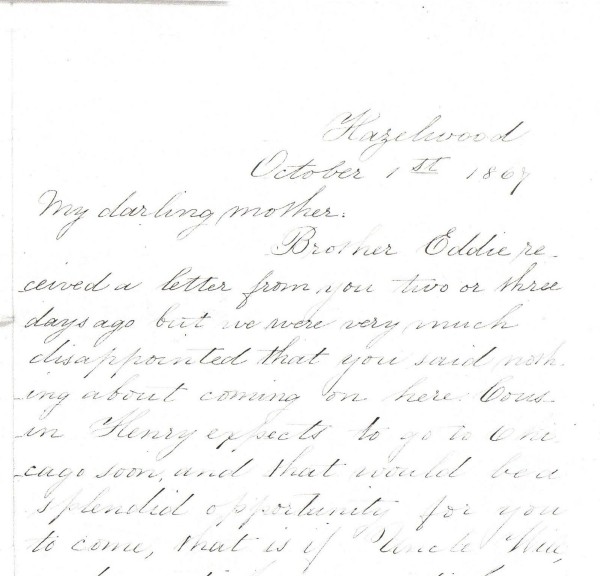 Hazelwood
October 1st 1867
My darling mother.
Brother Eddie re-
ceived a letter from you two or three
days ago but we were very much
disappointed that you said noth-
ing about coming on here. Cous-
in Henry expects to go to Chi
cago soon, and that would be a
splendid opportunity for you
to come, that is if Uncle Will,